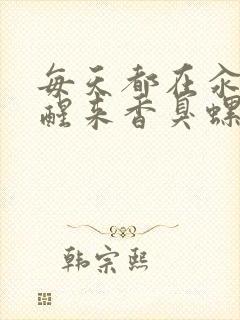 每天都在汆
醒来香臭螺
韩宗熙